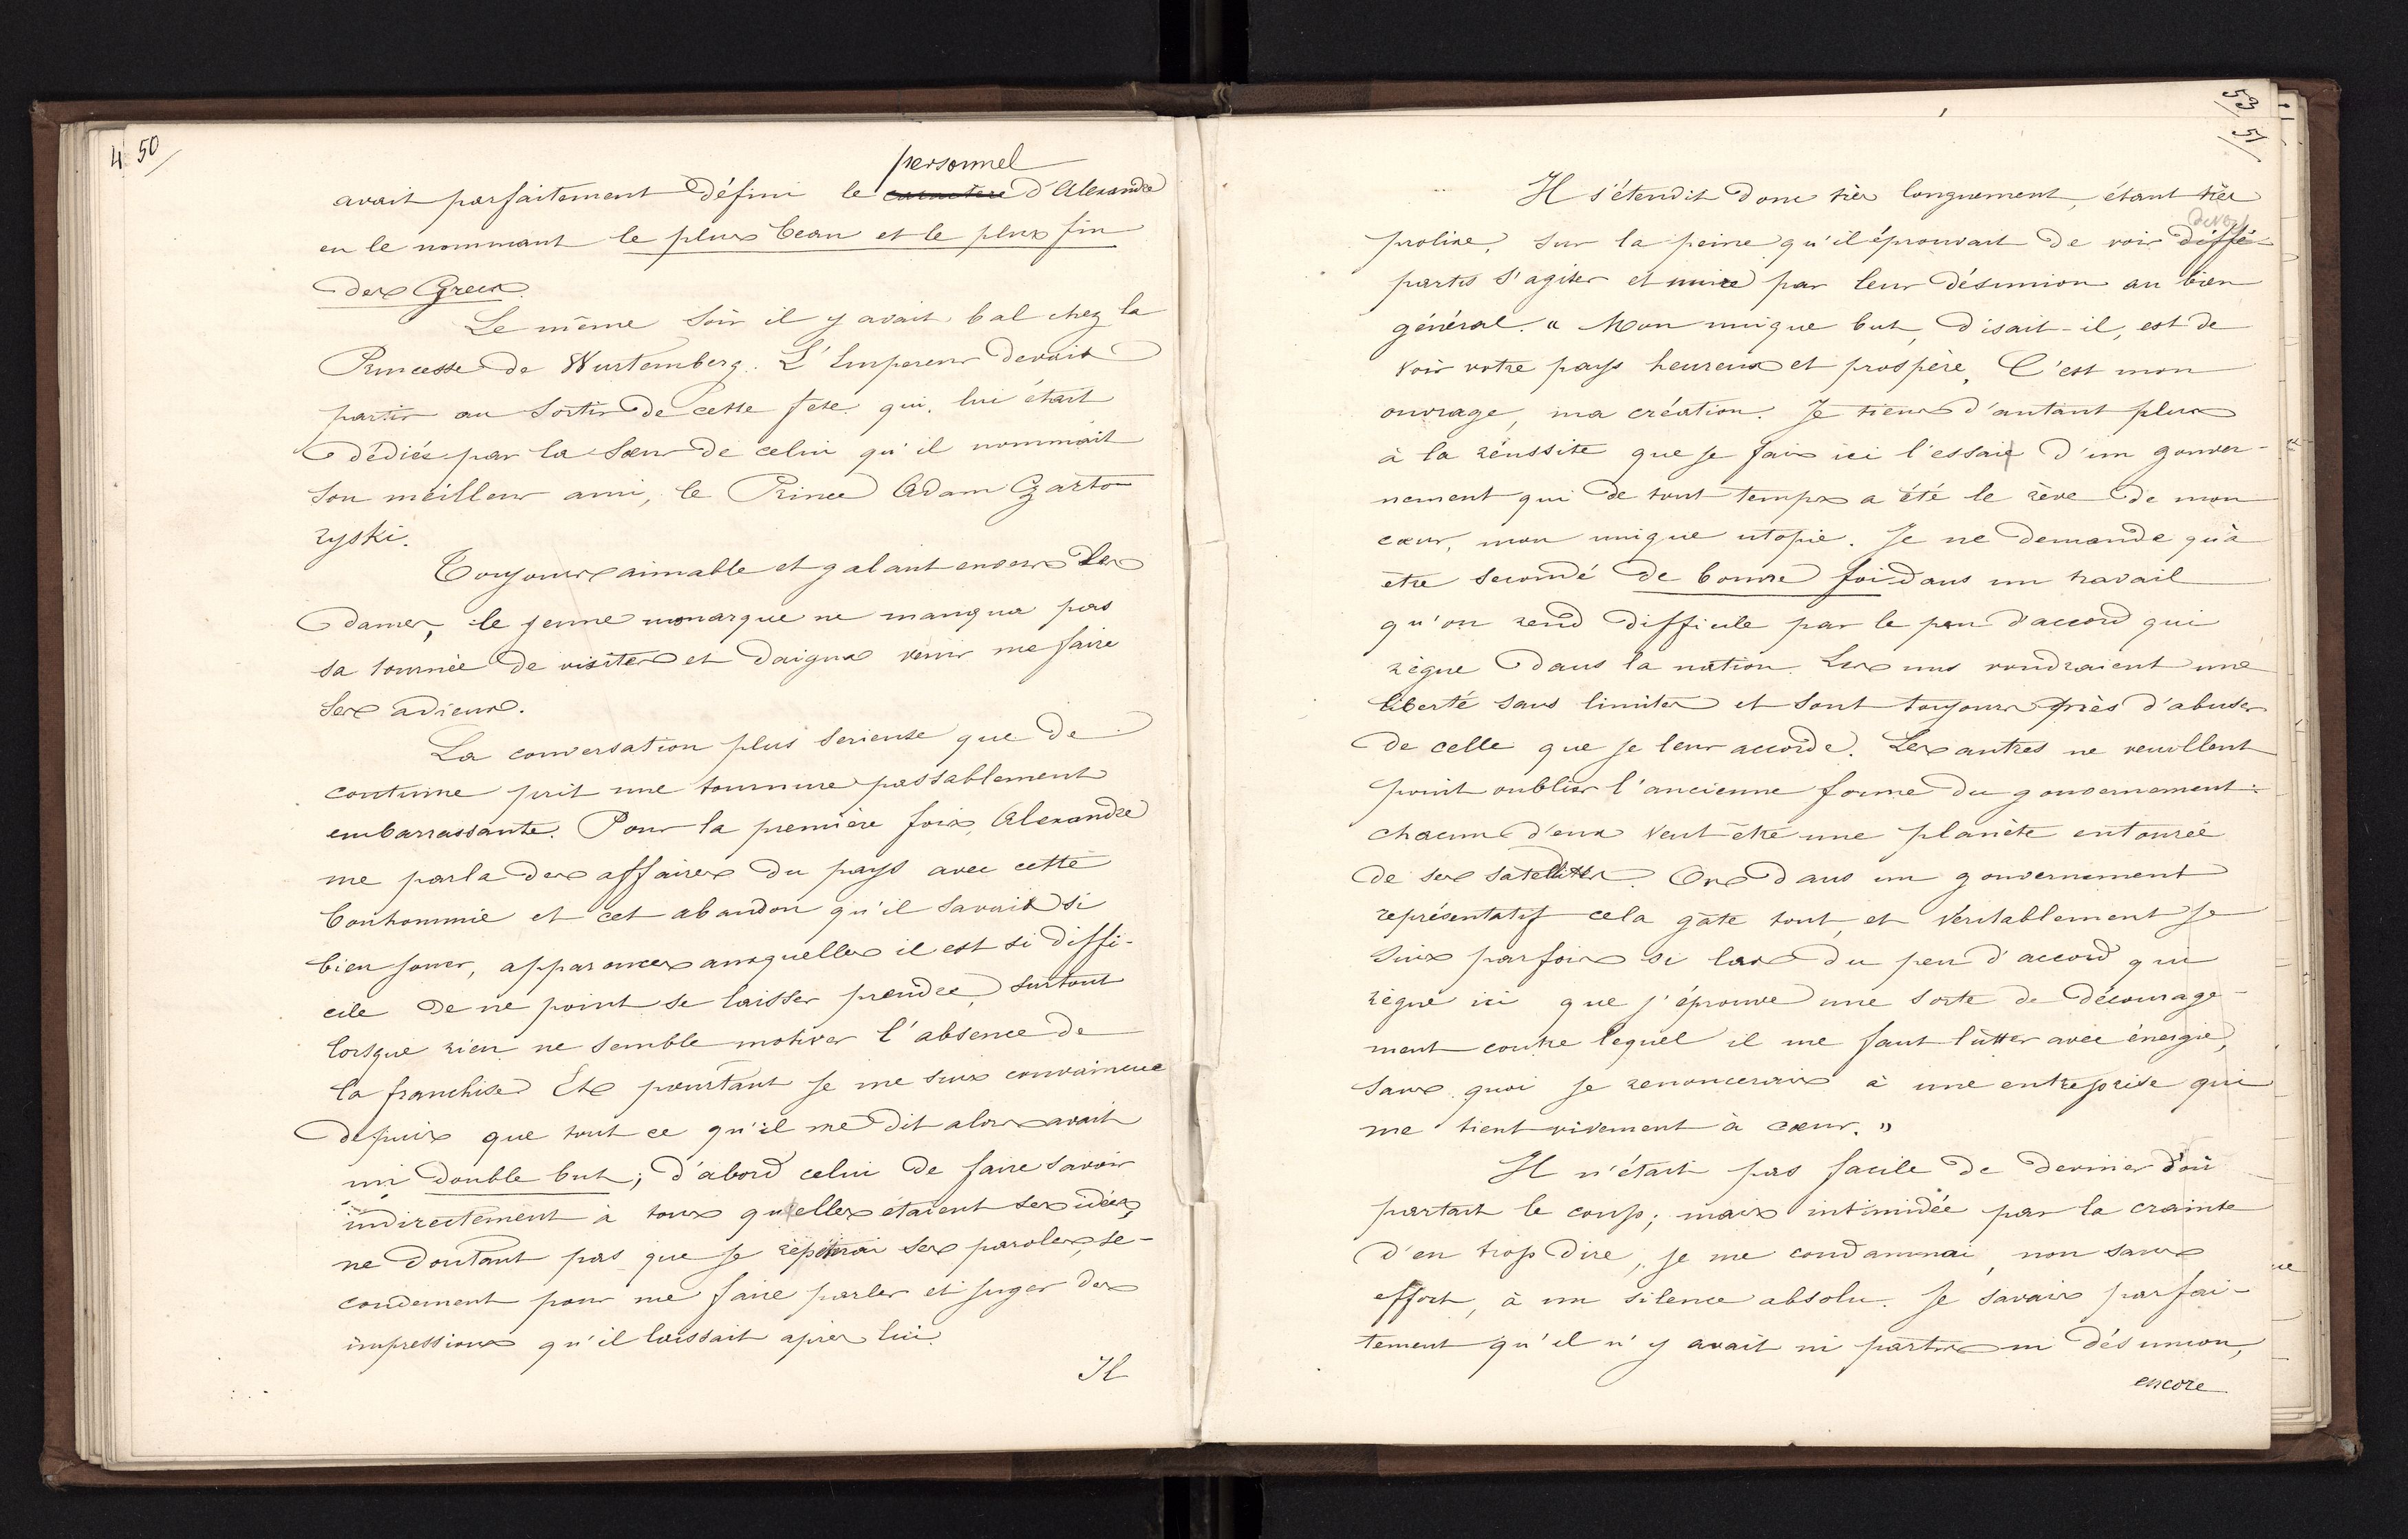 4 50
personnel
avait parfaitement défini le caractere d'Alexandre
en le nommant le plus beau et le plus fin
des Grecs.
Le même Soir il y avait bal chez la
Princesse de Wurtemberg. L'Empereur devait
partir au Sortir de cette fete qui lui était
dédiée par la Sœur de celui qu'il nommait
Son meilleur ami, le Prince Adam Czarto
ryski.
Toujours aimable et galant envers les
dames, le jeune monarque ne manqua pas
sa tournée de visites et daigna venir me faire
Ses adieux.
La conversation plus Serieuse que de
coutume prit une tournure passablement
embarrassante. Pour la première fois, Alexandre
me parla des affaires du pays avec cette
bonhommie et cet abandon qu'il Savait Si
bien jouer, apparences auxquelles il est si diffi-
cile de ne point se laisser prendre, Surtout
lorsque rien ne Semble motiver l'absence de
la franchise. Et pourtant je me suis convaincue
depuis que tout ce qu'il me dit alors avait
un double but; d'abord celui de faire Savoir
indirectement à tous quelles étaient Ses idées,
ne doutant pas que je répéterai Ses paroles, se-
condement pour me faire parler et juger des
impressions qu'il laissait après lui.
Il
53
51
Il s'étendit donc très longuement, étant très
prolixe, Sur la peine qu'il éprouvait de voir diffé-
partis S'agiter et nuire par leur désunion au bien
général. « Mon unique but, disait-il, est de
voir votre pays heureux et prospère, C'est mon
ouvrage, ma création. Je tiens d'autant plus
à la réussite que je fais ici l'essai d'un gouver-
nement qui de tout temps a été le rêve de mon
cœur, mon unique utopie. Je ne demande qu'à
être Secondé de bonne foi dans un travail
qu'on rend difficile par le peu d'accord qui
règne dans la nation. Les uns voudraient une
liberté Sans limites et Sont toujours près d'abuser
de celle que je leur accorde. Les autres ne veuillent
point oublier l'ancienne forme du gouvernement:
chacun d'eux Veut être une planète entourée
de Ses Satellites. Or dans un gouvernement
représentatif cela gâte tout, et Véritablement je
Suis parfois Si las du peu d'accord qui
règne ici que j'éprouve une Sorte de décourage-
ment contre lequel il me faut lutter avec énergie,
Sans quoi je renoncerais à une entreprise qui
me tient vivement à cœur. »
Il n'était pas facile de deviner d'où
partait le coup; mais intimidée par la crainte
d'en trop dire, je me condamnai, non Sans
effort, à un Silence absolu. Je Savais parfai-
tement qu'il n'y avait ni partis ni désunion,
encore